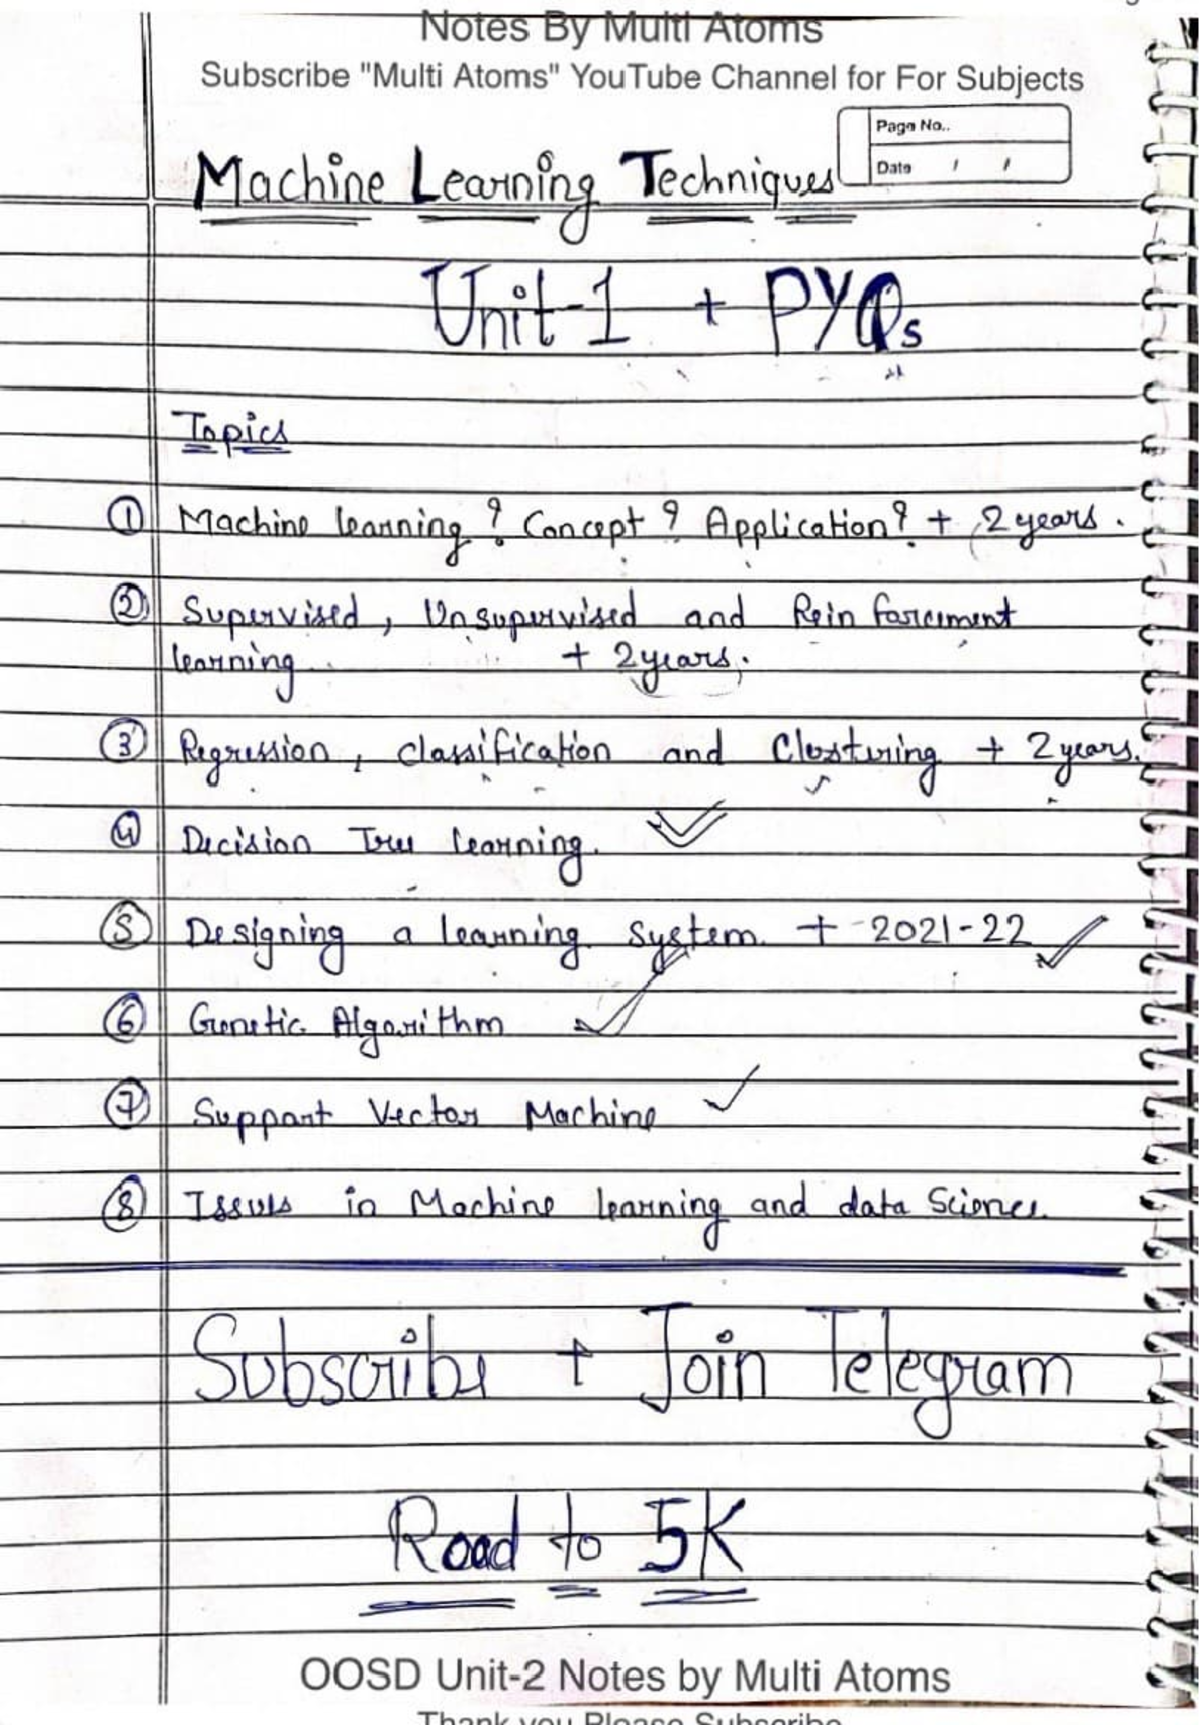 Notes By Multi Atoms
Subscribe "Multi Atoms" YouTube Channel for For Subjects
Page No..
Date / /
Machine Learning Techniques
Unit-1 + PYQs
Topics
① Machine learning ? Concept ? Application? + 2 years.
② Supervised, Unsupervised and Reinforcement
learning + 2 years.
③ Regression, classification and Clusturing + 2 years.
④ Decision Tree learning.
⑤ Designing a learning system. + 2021-22
⑥ Genetic Algorithm
⑦ Support Vector Machine
⑧ Issues in Machine learning and data Science.
Subscribe + Join Telegram
Road to 5K
OOSD Unit-2 Notes by Multi Atoms
Thank you Please Subscribe